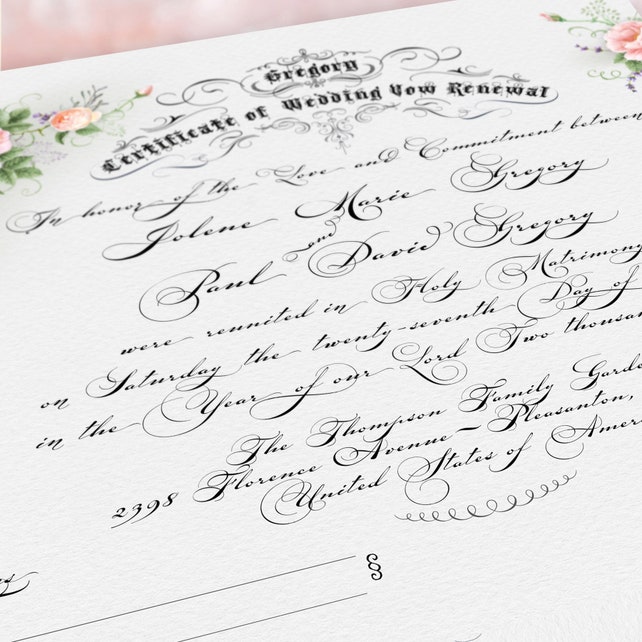 Gregory
Certificate of Wedding Vow Renewal
In honor of the Love and Commitment between
Jolene Marie Gregory
and
Paul David Gregory
were reunited in Holy Matrimony
on Saturday the twenty-seventh Day of
in the Year of our Lord Two thousan
The Thompson Family Garde
2398 Florence Avenue – Pleasanton,
United States of Amer
§